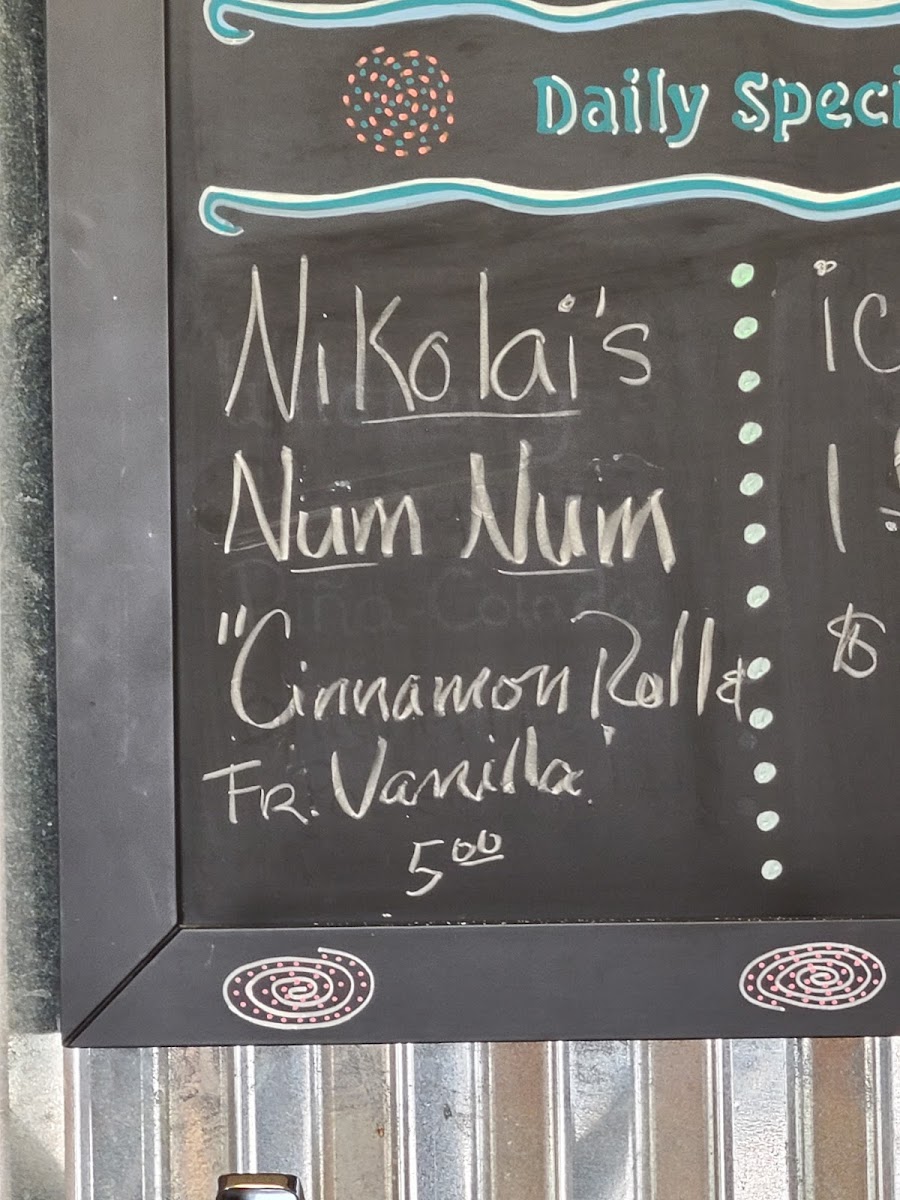 Daily Speci
Nikolai's
Num Num
"Cinnamon Roll &
Fr. Vanilla"
5.00
ic
1
$